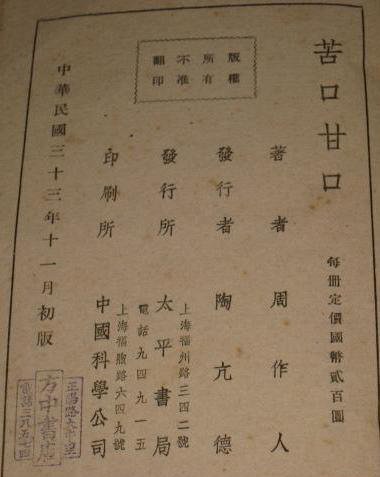 苦口甘口
每冊定價國幣貳百圓
版權
所有
不准
翻印
著者 周作人
發行者 陶亢德
上海福州路三四二號
發行所 太平書局
電話九四九一五
上海福煦路六四九號
印刷所 中國科學公司
中華民國三十三年十一月初版
方中書店